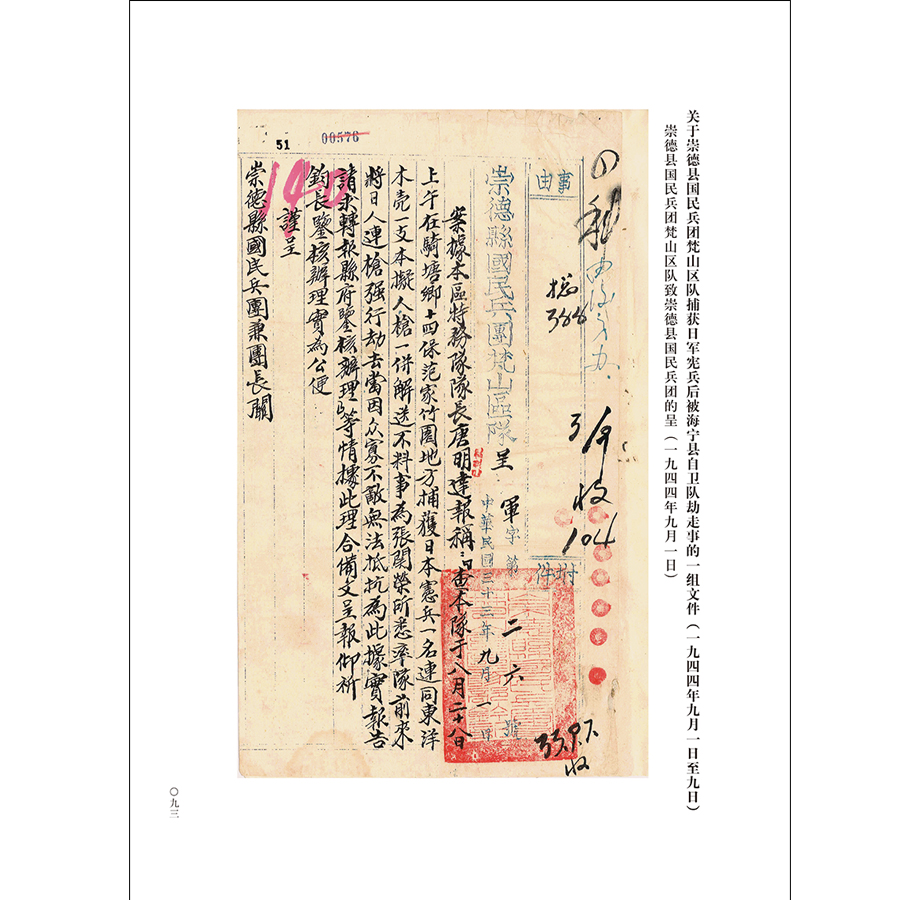 关于崇德县国民兵团梵山区队捕获日军宪兵后被海宁县自卫队劫走事的一组文件（一九四四年九月一日至九日）
崇德县国民兵团梵山区队致崇德县国民兵团的呈（一九四四年九月一日）
收
104
事由
附件
崇德縣國民兵團梵山區隊呈
軍字第二六號
中華民國三十三年九月一日
33.9.7.
收
案據本區特務隊隊長唐明達報稱：「查本隊于八月二十八日
上午在騎塘鄉十四保范家竹園地方捕獲日本憲兵一名連同東洋
木壳一支本擬人槍一併解送不料事為張関榮所悉率隊前來
將日人連槍强行劫去當因众寡不敵無法抵抗為此據實報告
請求轉報縣府鑒核辦理」等情據此理合備文呈報仰祈
鈞長鑒核辦理實為公便
謹呈
崇德縣國民兵團兼團長關
51
00576
140
〇九三